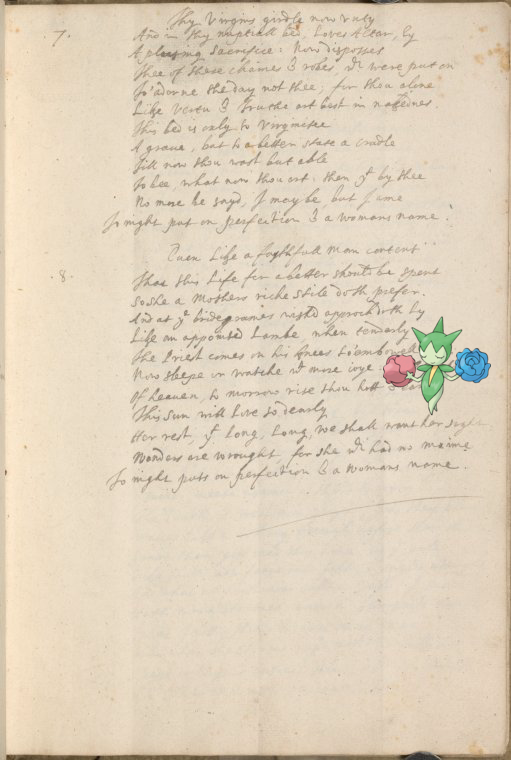 Thy Virgins girdle now vnty
7. And in thy nuptiall bed, Loves Altar, ly
A pleasing sacrifice: Now disposses
Thee of these chaines & robes, wch were put on
To'adorne the day not thee; for thou alone
Like Vertu & truthe art best in nakednes.
This bed is only to Virginitee
A graue, but to a better state a cradle
Till now thou wast but able
To bee, what now thou art: then yt by thee
No more be sayd, I may be, but I ame
To night put on perfection & a womans name.
Euen Like a faythfull man content
8. That this Life for a better should be spent
So she a Mothers riche stile doth prefer.
And at ye bridegromes wishd approch doth ly
Like an appointed Lambe, when tenderly
The Priest comes on his knees to'embowell
Now sleepe or watche wt more ioye
Of heaven, to morrow rise thou hott &
This Sun will Love so dearly
Her rest, yt long, Long, we shall want her sight
Wonders are wrought, for she wch had no maime
To night puts on perfection & a womans name.